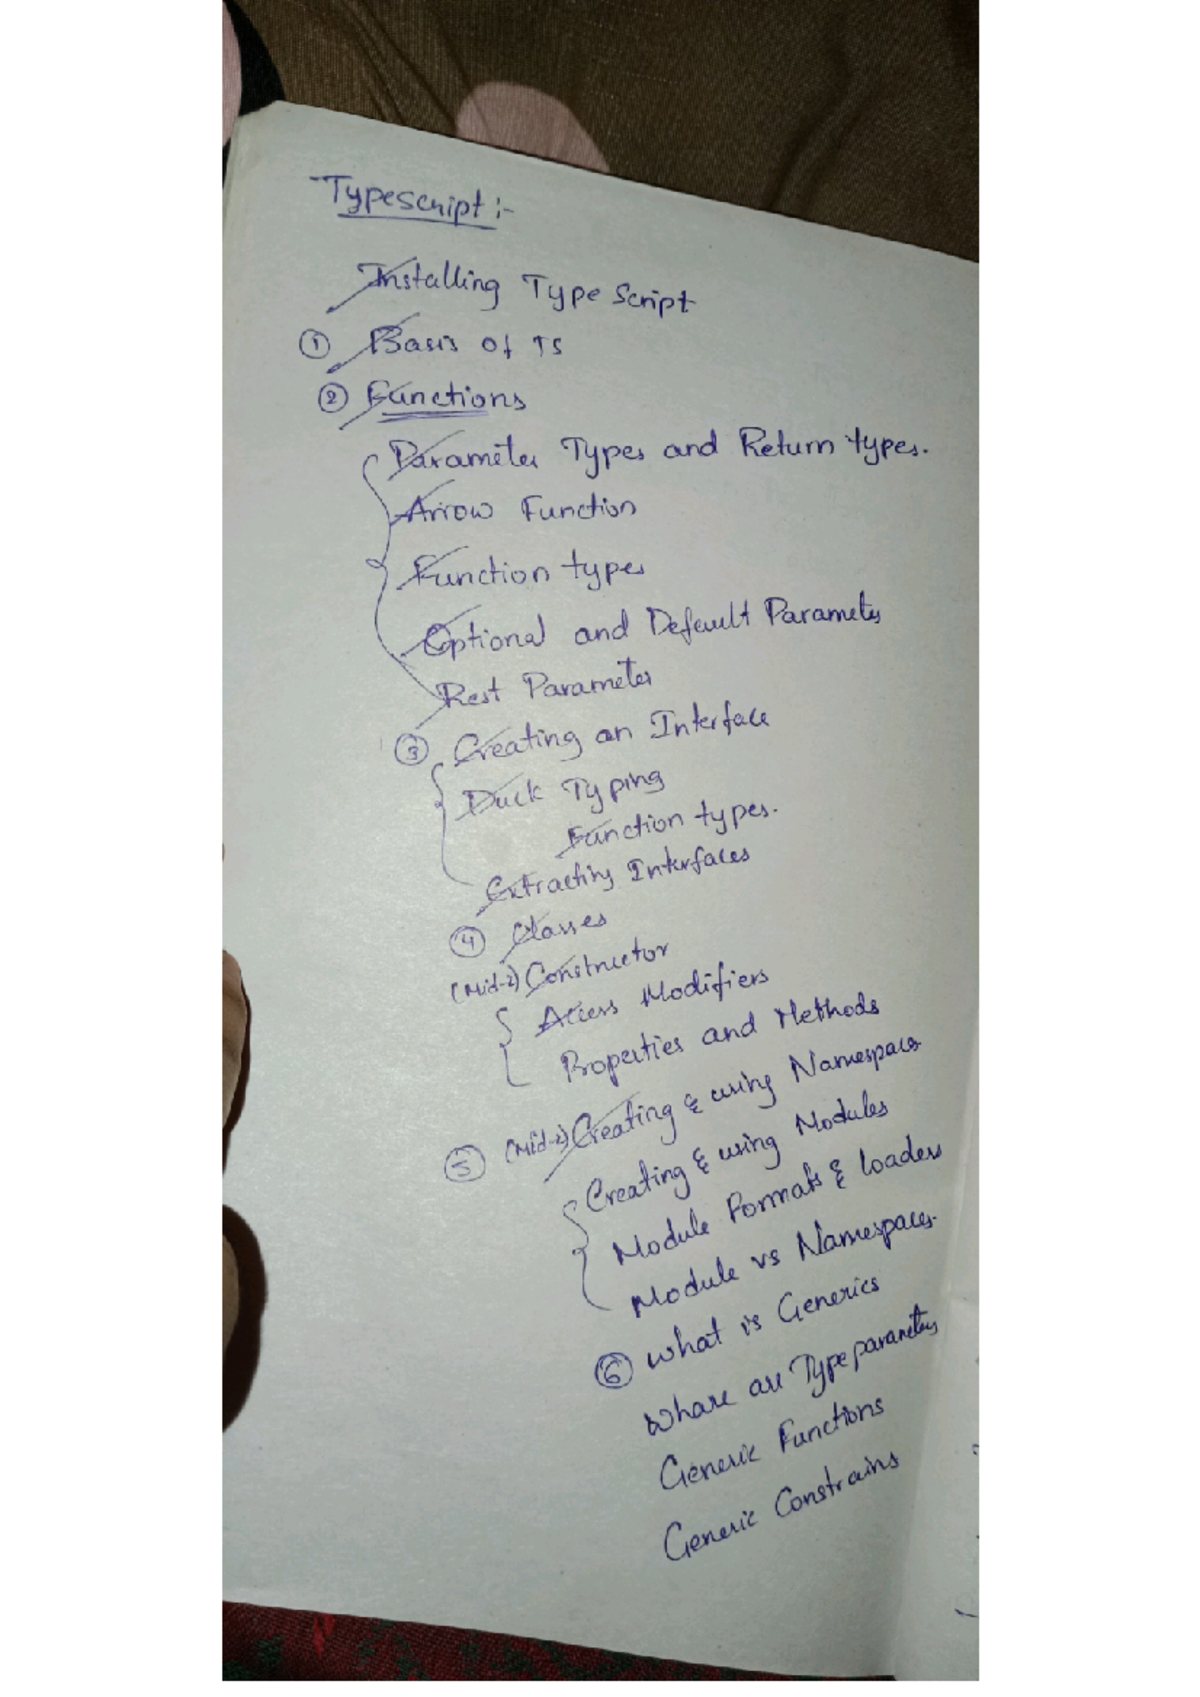 Typescript :-
Installing Type Script
① Basis of TS
② Functions
Parameter Types and Return types.
Arrow Function
Function types
Optional and Default Parameters
Rest Parameter
③ Creating an Interface
Duck Typing
Function types.
Extracting Interfaces
④ Classes
(Mid-2) Constructor
Access Modifiers
Properties and Methods
⑤ (Mid-2) Creating & using Namespaces
Creating & using Modules
Module Formats & loaders
Module vs Namespaces
⑥ what is Generics
Whare are Type parameters
Generic Functions
Generic Constrains